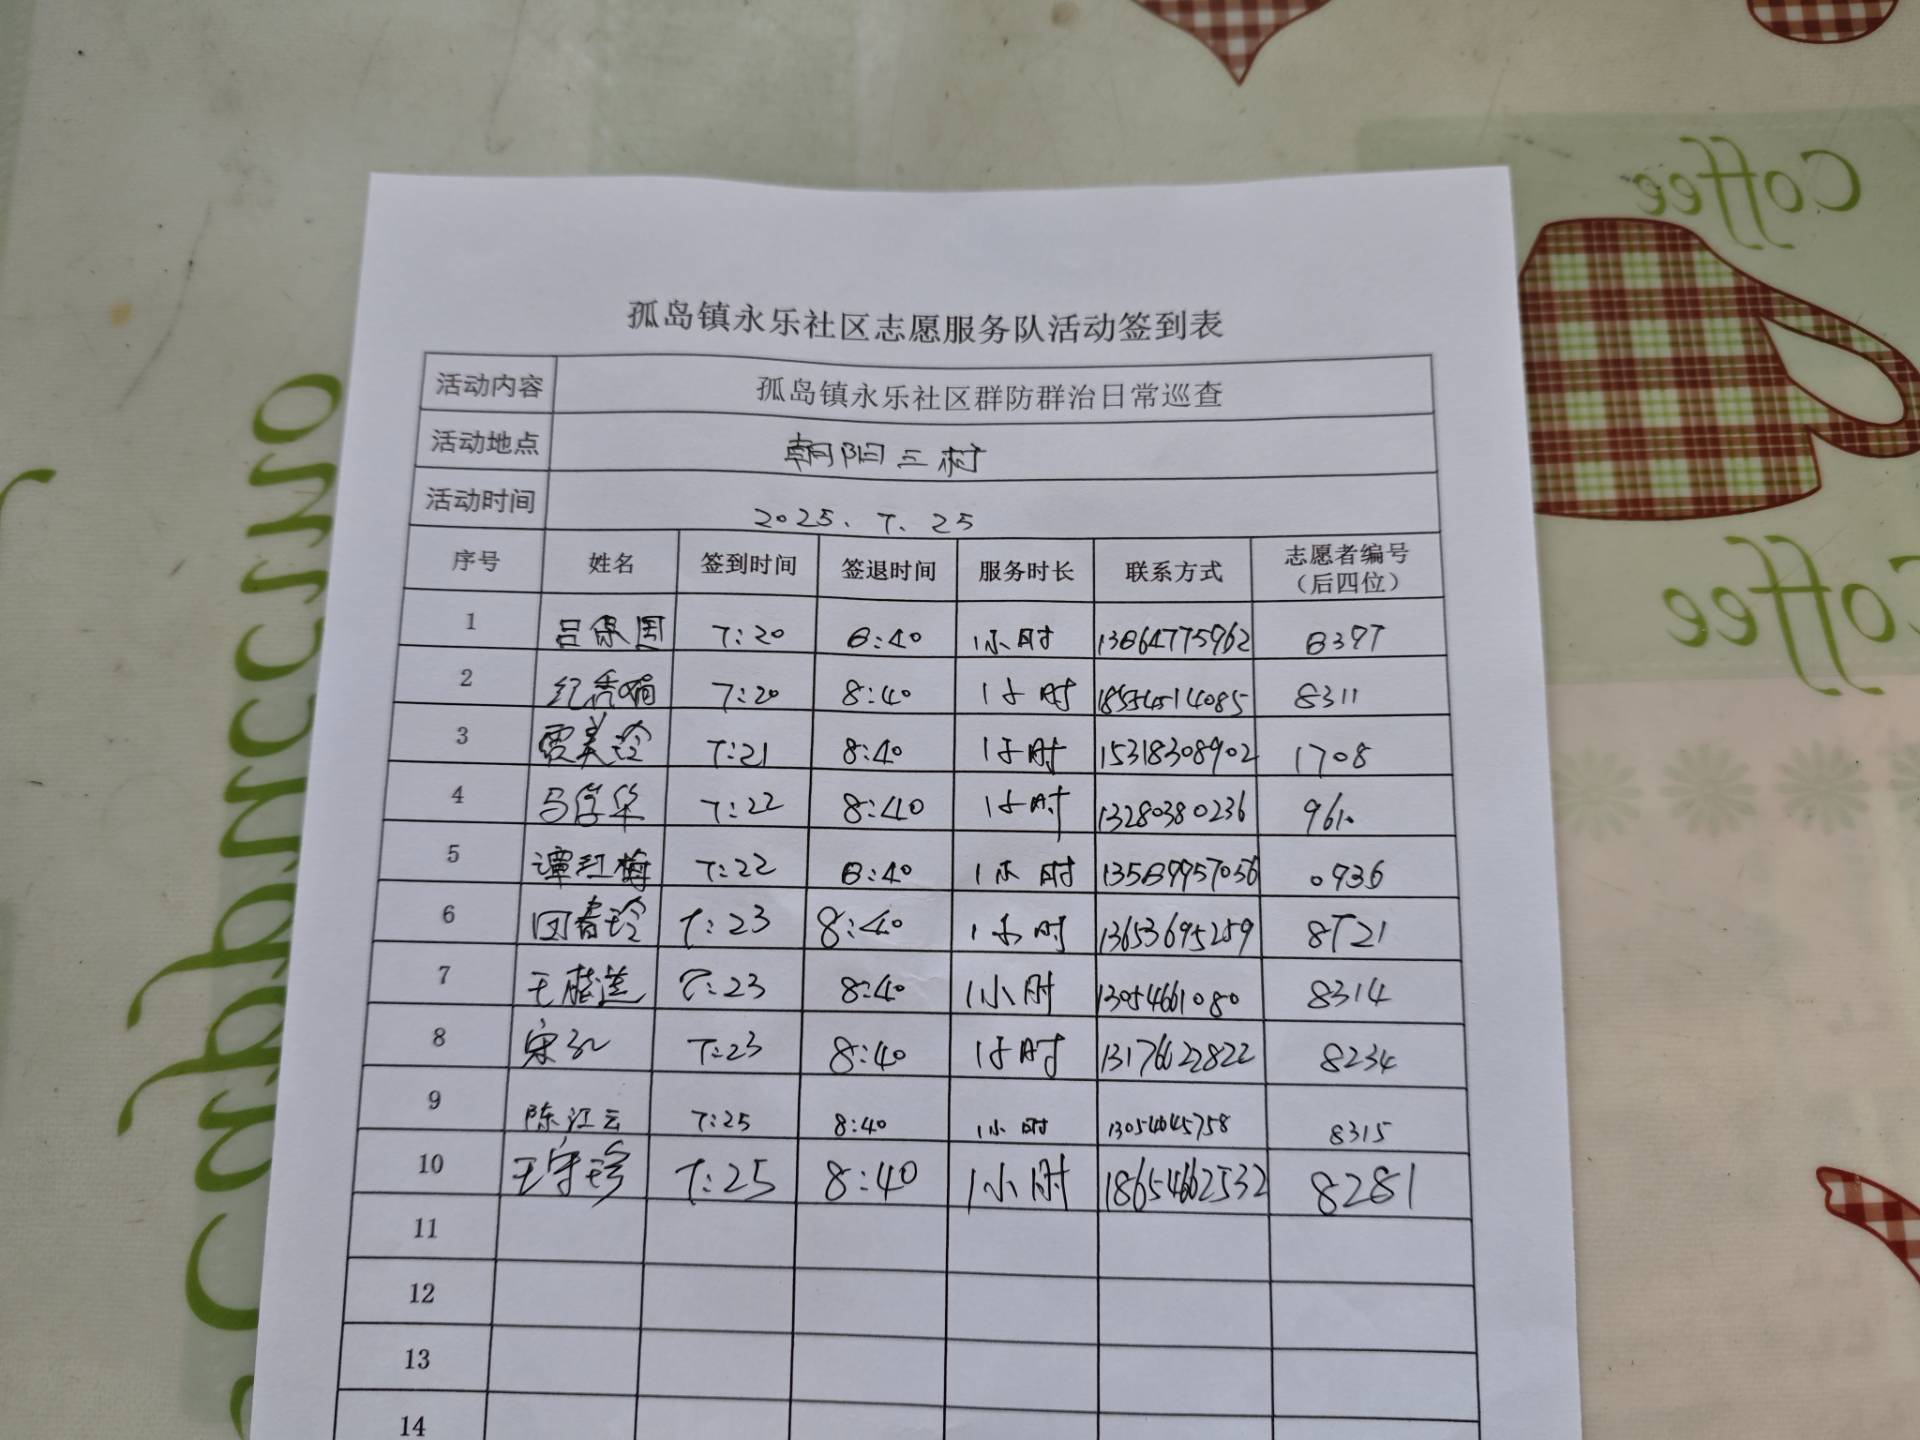 孤岛镇永乐社区志愿服务队活动签到表
活动内容 孤岛镇永乐社区群防群治日常巡查
活动地点 朝阳三村
活动时间 2025.7.25
序号 姓名 签到时间 签退时间 服务时长 联系方式 志愿者编号（后四位）
1 吕保国 7:20 8:40 1小时 13864775962 8397
2 纪秀娟 7:20 8:40 1小时 8311
3 贾美玲 7:21 8:40 1小时 15318308902 1708
4 马学华 7:22 8:40 1小时 13280380236
5 谭红梅 7:22 8:40 1小时 13589957056 0936
6 田春玲 7:23 8:40 1小时 13653695259 8721
7 王桂莲 7:23 8:40 1小时 13054661080 8314
8 宋 7:23 8:40 1小时 13176622822 8234
9 陈江云 7:25 8:40 1小时 13054045758 8315
10 王守珍 7:25 8:40 1小时 18654662532 8281
11
12
13
14
Coffee
Coffee
Cappuccino